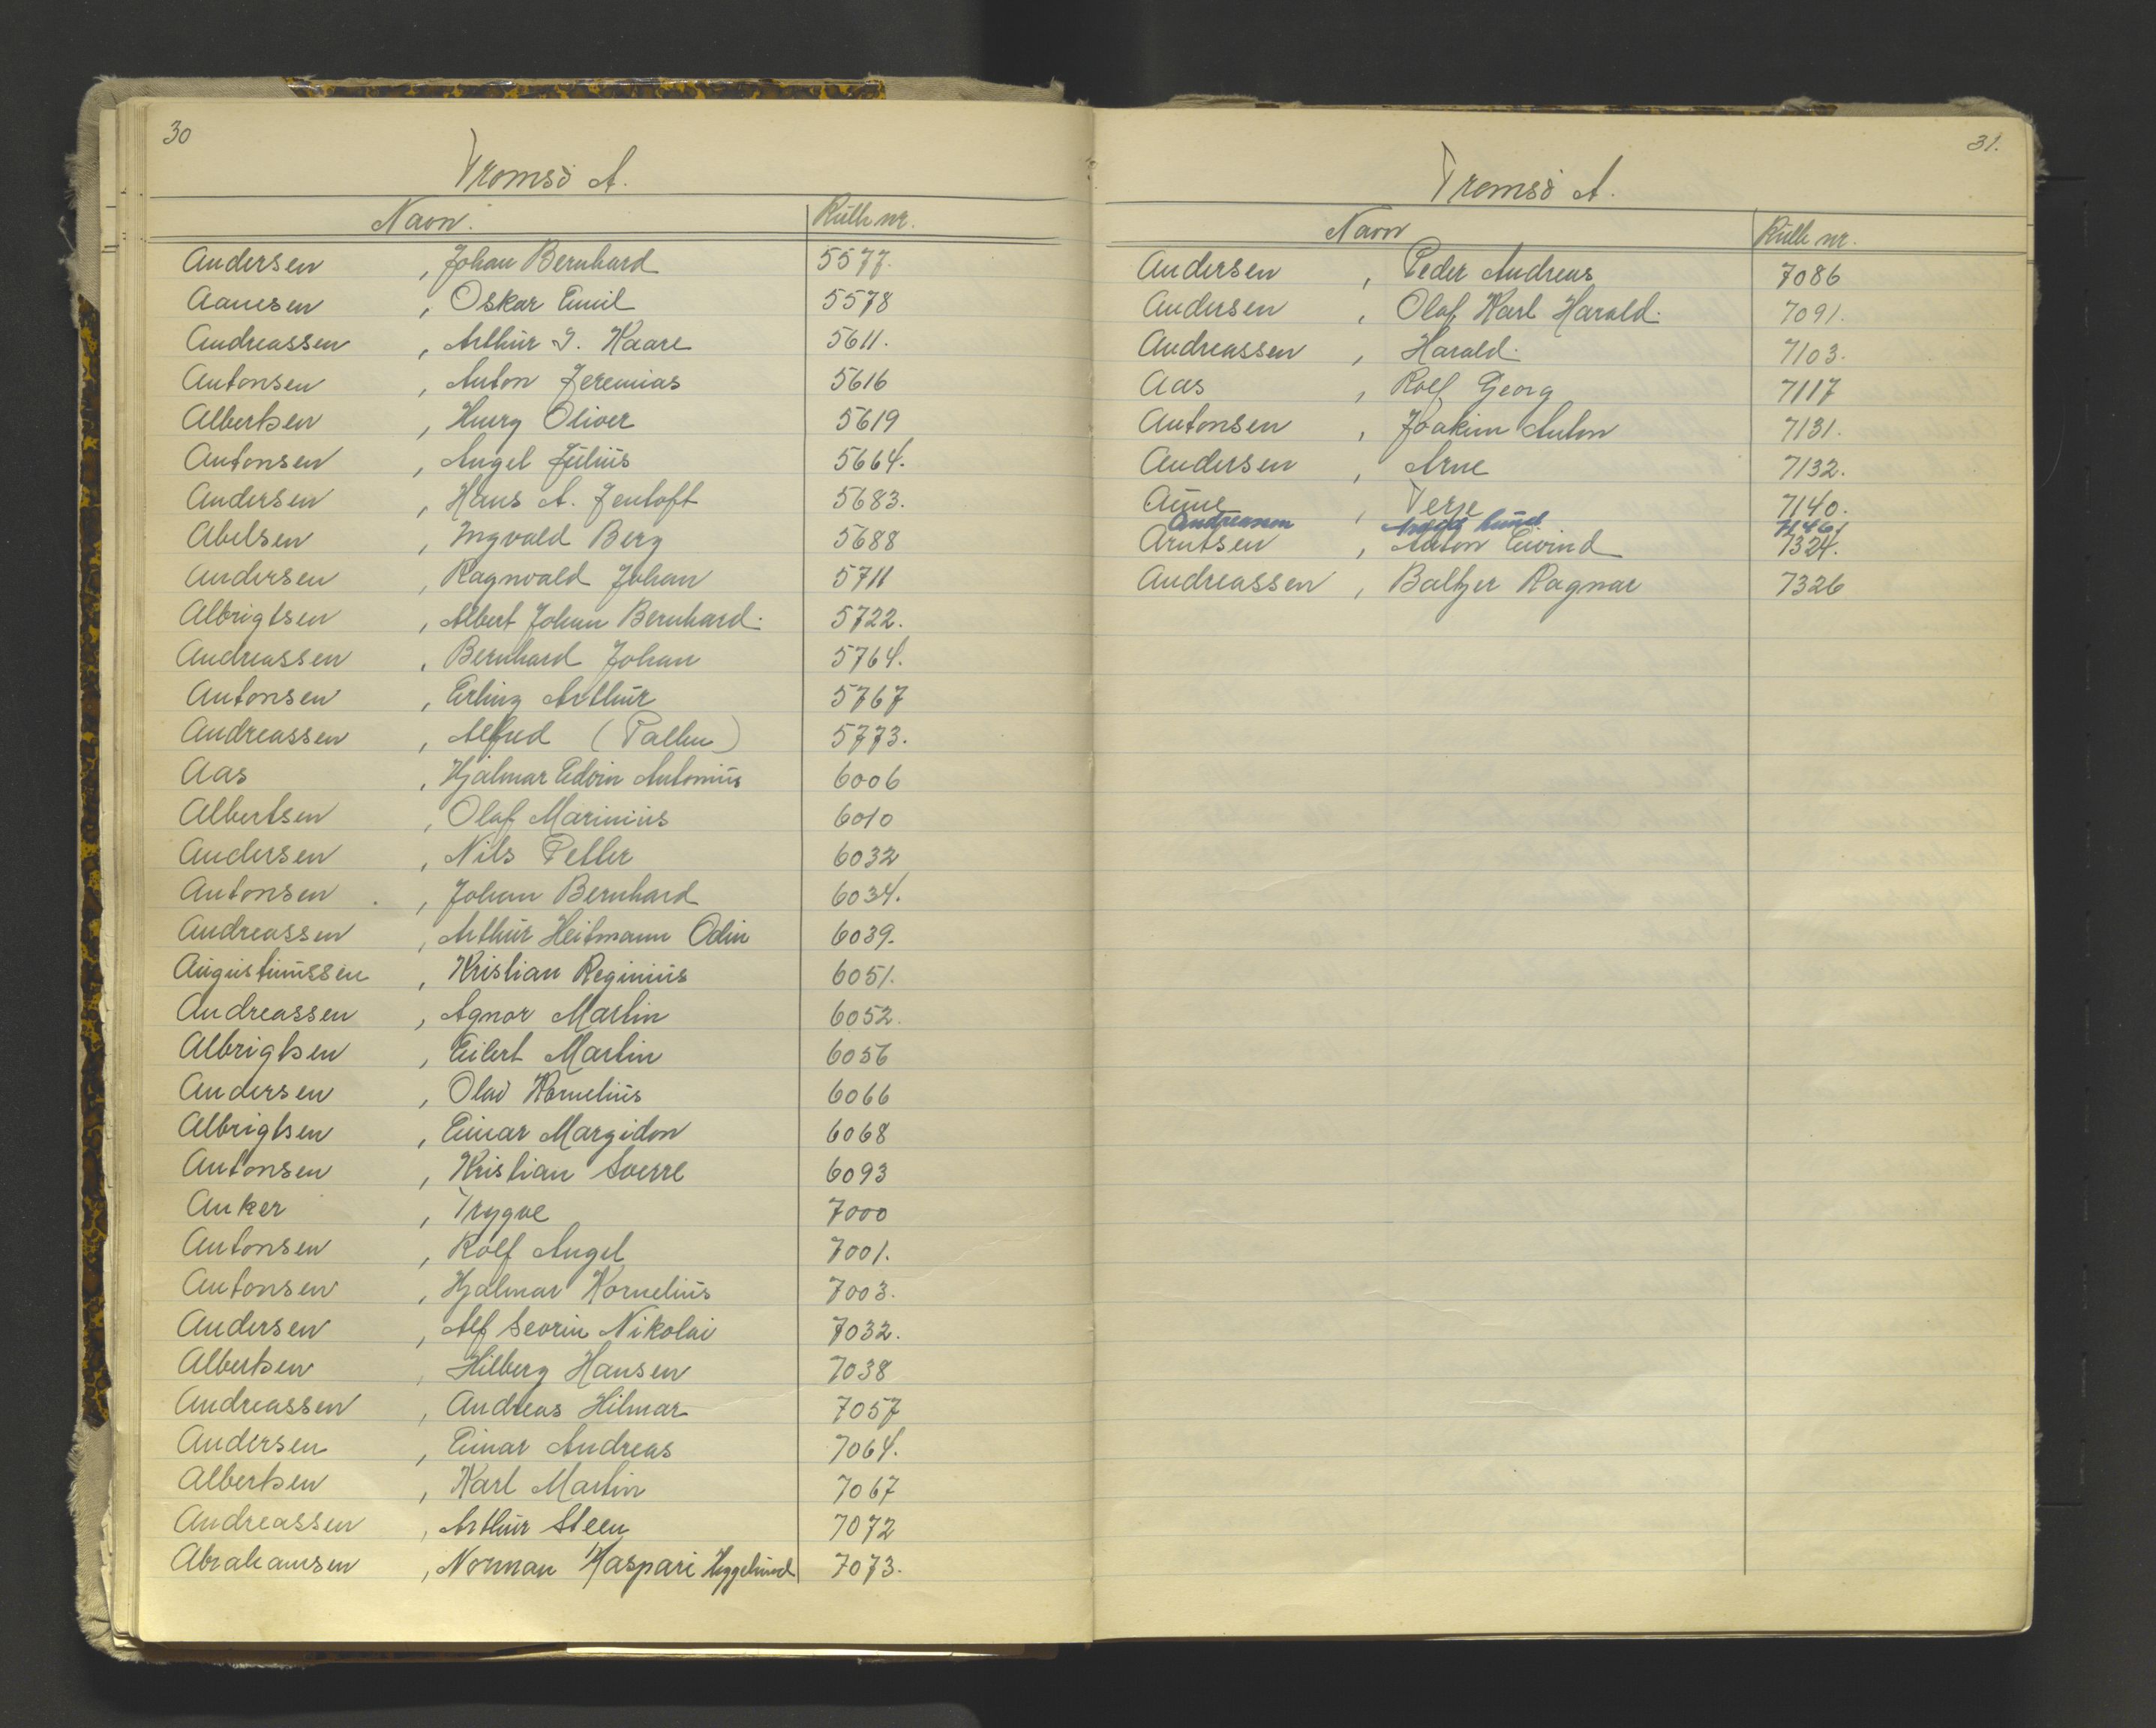 30
Tromsö A.
Navn. Rulle nr.
Andersen, Johan Bernhard 5577.
Aanesen, Oskar Emil 5578
Andreassen, Arthur I. Kaare 5611.
Antonsen, Anton Jeremias 5616
Albertsen, Henry Oliver 5619
Antonsen, Angel Julius 5664.
Andersen, Hans A. Jentoft 5683.
Abelsen, Ingvald Berg 5688
Andersen, Ragnvald Johan 5711
Albrigtsen, Albert Johan Bernhard. 5722.
Andreassen, Bernhard Johan 5764.
Antonsen, Erling Arthur 5767
Andreassen, Alfred 5773.
Aas, Hjalmar Edvin Antonius 6006
Albertsen, Olaf Marinius 6010
Andersen, Nils Petter 6032
Antonsen, Johan Bernhard 6034.
Andreassen, Arthur Heitmann Odin 6039.
Augustinussen, Kristian Reginius 6051.
Andreassen, Agnor Martin 6052.
Albrigtsen, Eilert Martin 6056
Andersen, Olav Kornelius 6066
Albrigtsen, Einar Margidon 6068
Antonsen, Kristian Sverre 6093
Anker, Trygve 7000
Antonsen, Rolf Angel 7001.
Antonsen, Hjalmar Kornelius 7003.
Andersen, Alf Sevrin Nikolai 7032.
Albertsen, Hilberg Hansen 7038
Andreassen, Andreas Hilmar 7057
Andersen, Einar Andreas 7064.
Albertsen, Karl Martin 7067
Andreassen, Arthur Steen 7072
Abrahamsen, Norman Kaspari Hyggelund 7073.
31.
Tromsö A.
Navn Rulle nr.
Andersen, Peder Andreas 7086
Andersen, Olaf Karl Harald. 7091.
Andreassen, Harald. 7103.
Aas, Rolf Georg 7117
Antonsen, Joakim Anton 7131.
Andersen, Arne 7132.
Aune, Terje 7140.
Andreassen Lund 7146
Arntsen, Anton Eivind 7324.
Andreassen, Baltzer Ragnar 7326